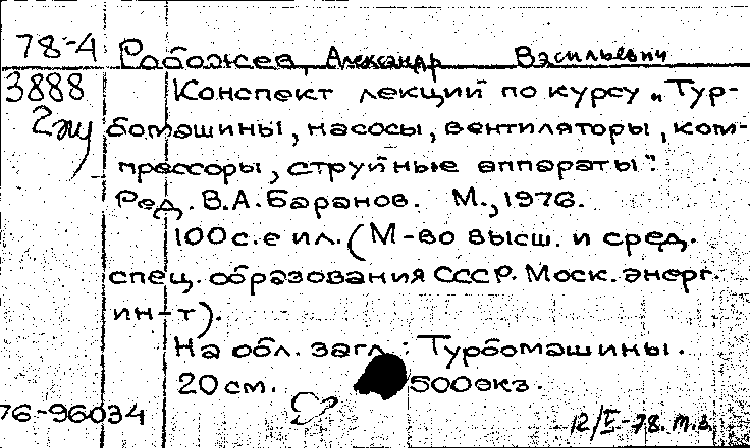 78-4 Рабожев, Александр Васильевич
3888 Конспект лекций по курсу „Тур-
бомашины, насосы, вентиляторы, ком-
прессоры, струйные аппараты".
Ред. В.А.Баранов. М., 1976.
100с.с ил. (М-во высш. и сред.
спец. образования СССР. Моск. энерг.
ин-т).
На обл. загл.: Турбомашины.
20см. 500экз.
76-96034